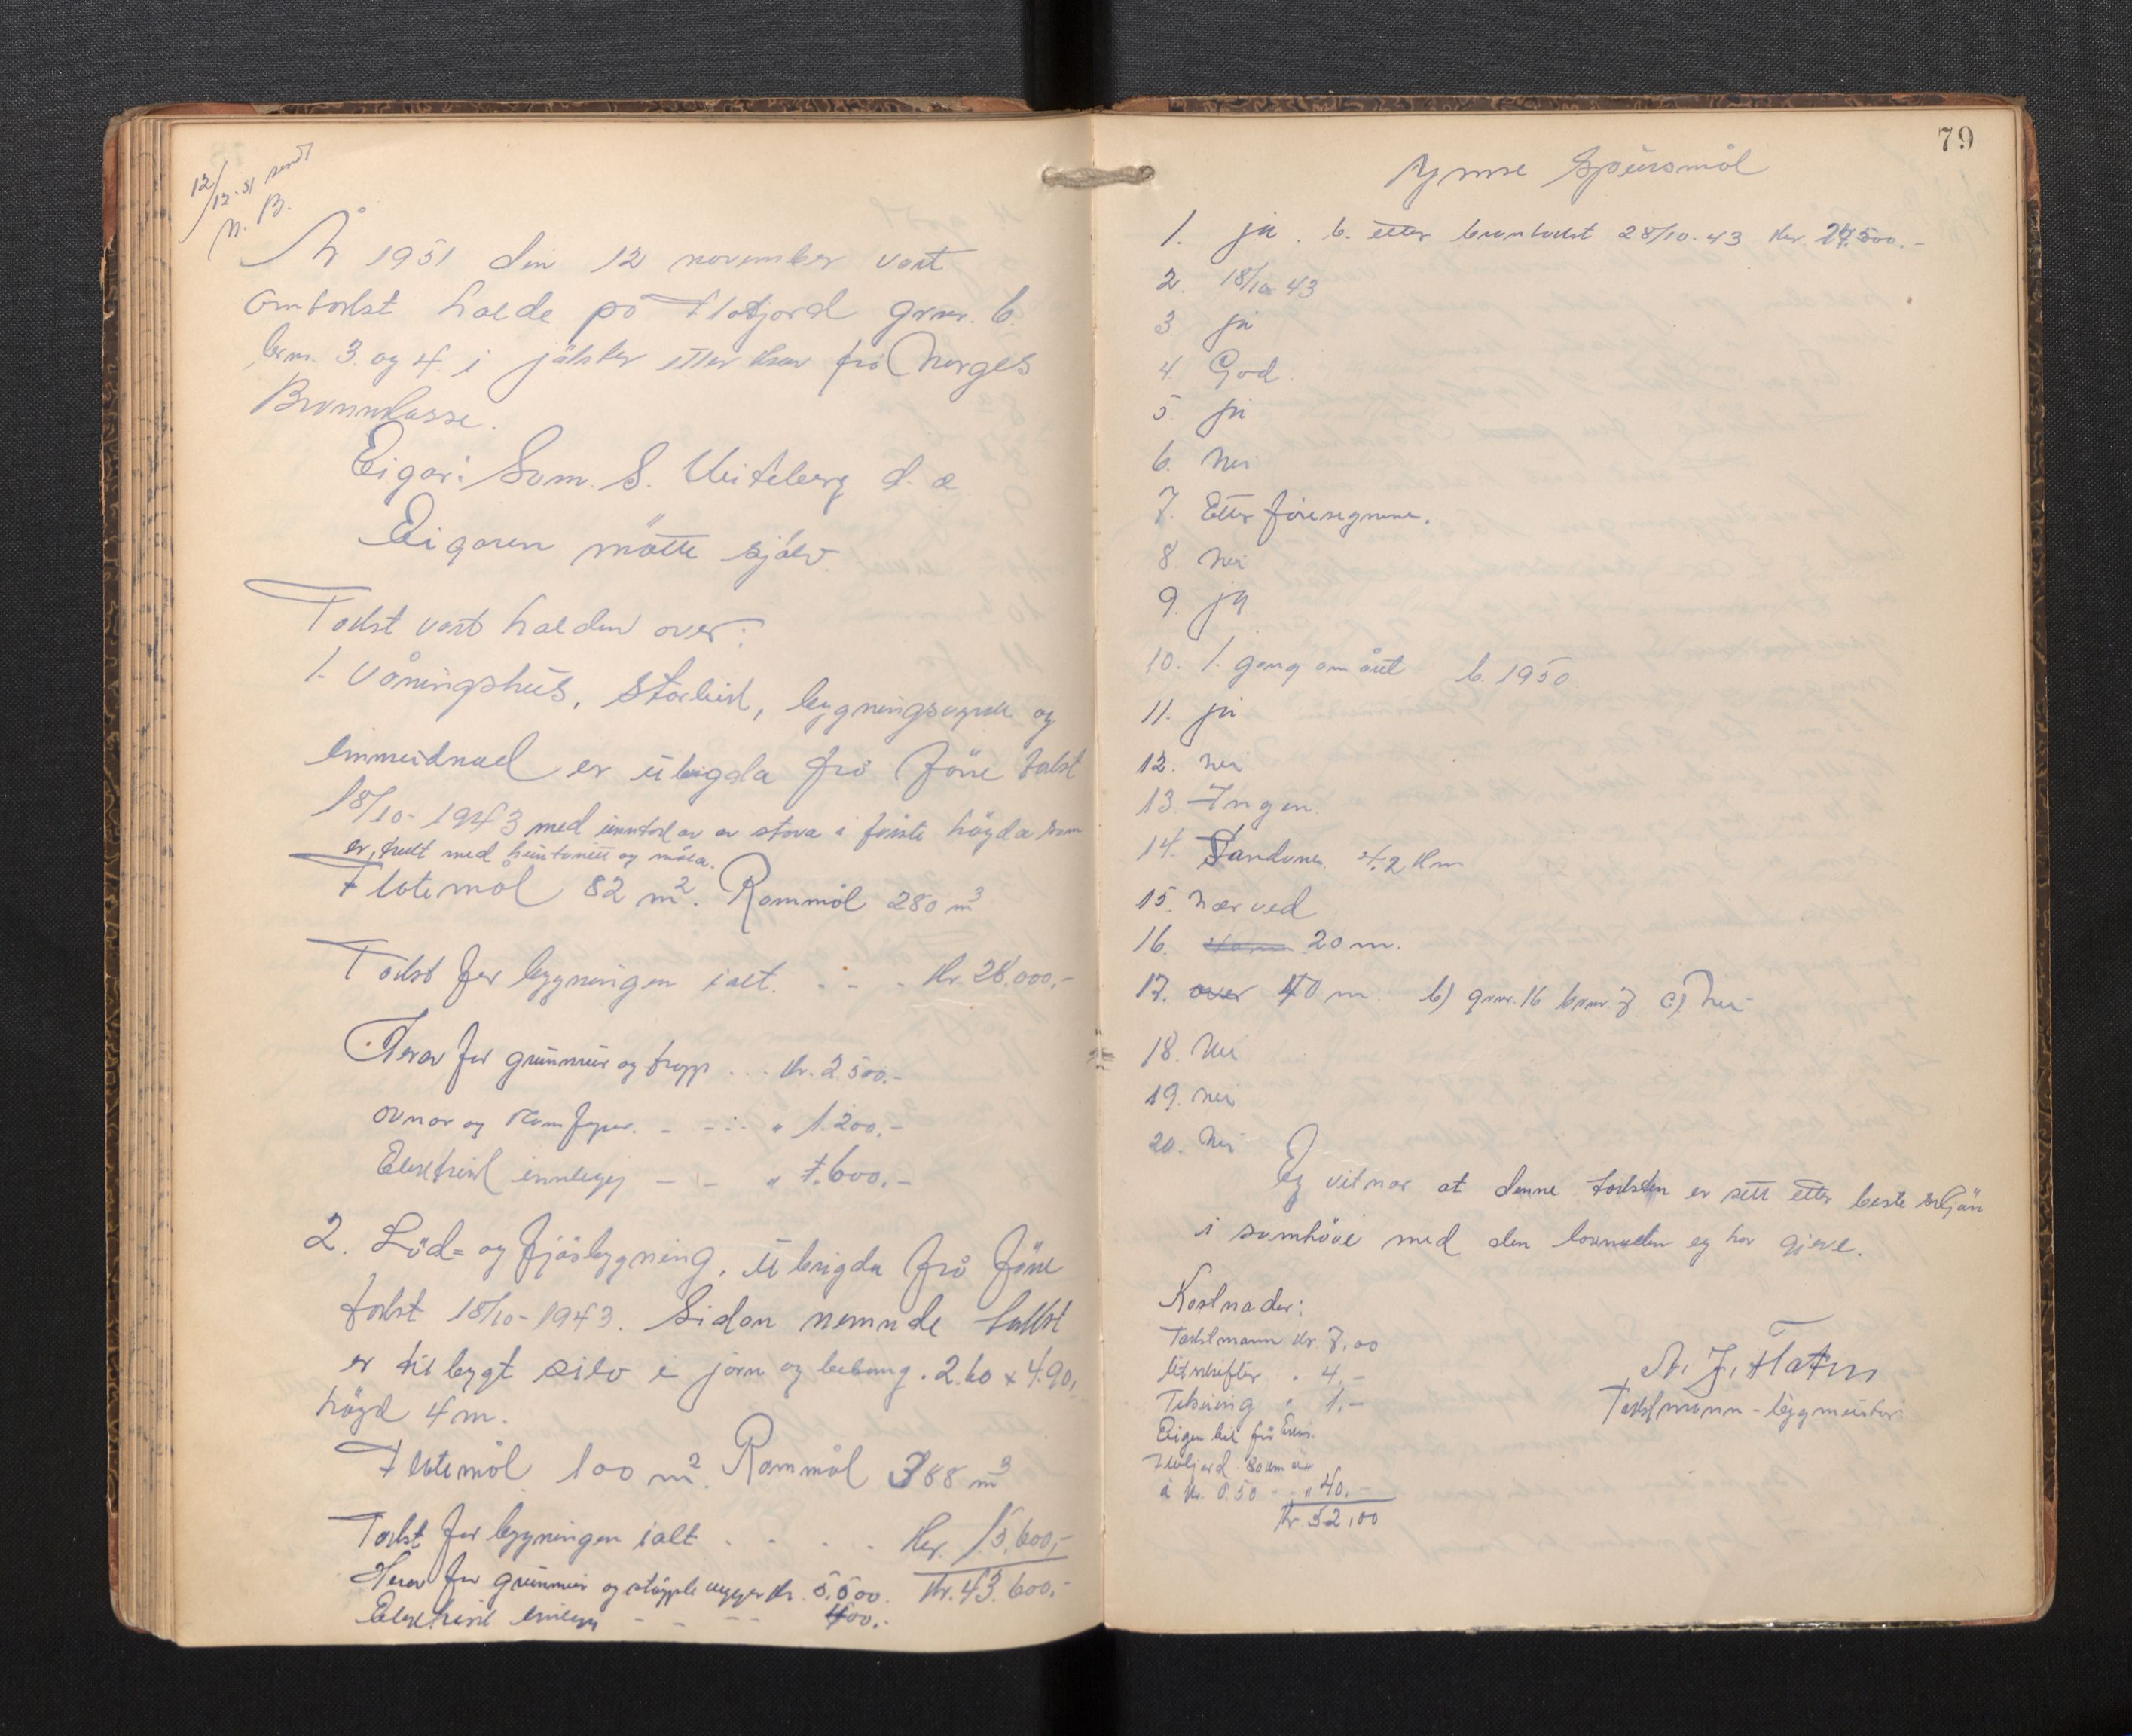 12/12-51 sendt
N. B.
År 1951 den 12 november vart
omtakst halde på Flatjord gnr. 6.
brn. 3. og 4. i Jølster etter krav frå Norges
Brannkasse.
Eigar: Sam. S. Veiteberg d. e.
Eigaren møtte sjølv.
Takst vart halden over:
1. Våningshus, storleik, bygningsmåte og
innreidnad er ubrigda frå føre takst
18/10-1943 med unntak av ei stova i første høgda som
er trekt med huntonitt og måla.
Flatemål 82 m². Rommål 280 m³
Takst for bygningen ialt. . . . Kr. 28.000,-
Herav for grunnmur og trapp . . . Kr. 2.500.-
ovnar og komfyrer. - - . . " 1.200.-
Elektrisk innlegg - - " 1.600.-
2. Löd= og fjösbygning. Ubrigda frå føre
takst 18/10-1943. Sidan nemnde takst
er tilbygt silo i jarn og betong. 2.60 x 4.90,
høgd 4 m.
Flatemål 100 m². Rommål 388 m³
Takst for bygningen ialt . . . . Kr. 15.600,-
Herav for grunnmur og støypte vegger Kr. 5.500. Kr. 43.600.-
Elektrisk innlegg - - - - 400.-
79
Ymse Spursmål
1. ja. b. etter branntakst 28/10-43 Kr. 24.500.-
2. 18/10-43
3 ja
4. God.
5. ja
6. Nei
7. Etter føresegnene.
8. Nei
9. ja
10. 1. gang om året b. 1950
11. ja
12. nei
13 Ingen.
14. Sandane. 42 km
15. nær ved
16. 20 m.
17. over 40 m. b) gnr. 16 bnr. 7 c) Nei
18. Nei
19. nei
20. Nei
Eg vitnar at denne taksten er sett etter beste skjön
i samhöve med den lovnaden eg har gjeve.
Kostnader:
Takstmann Kr. 7,00
Utskrifter " 4,-
Tekning " 1,-
Eigen bil frå
Flatjord 80 km
à kr. 0.50 - - " 40.-
Kr. 52,00
A. J. Flaten
Takstmann - bygmeister